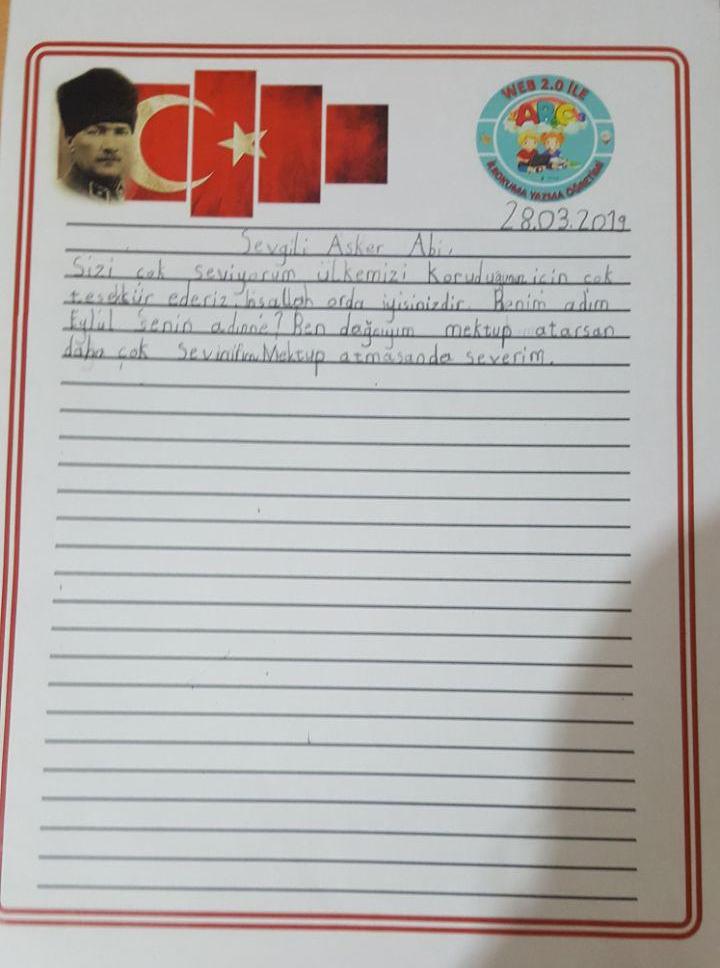 WEB 2.0 İLE
ABC
İLKOKUMA YAZMA ÖĞRETİMİ
28.03.2019
Sevgili Asker Abi,
Sizi çok seviyorum ülkemizi koruduğunuz için çok
teşekkür ederiz. İnşallah orda iyisinizdir. Benim adım
Eylül senin adınne? Ben değcuyum mektup atarsan
daha çok sevinirim. Mektup atmasanda severim.